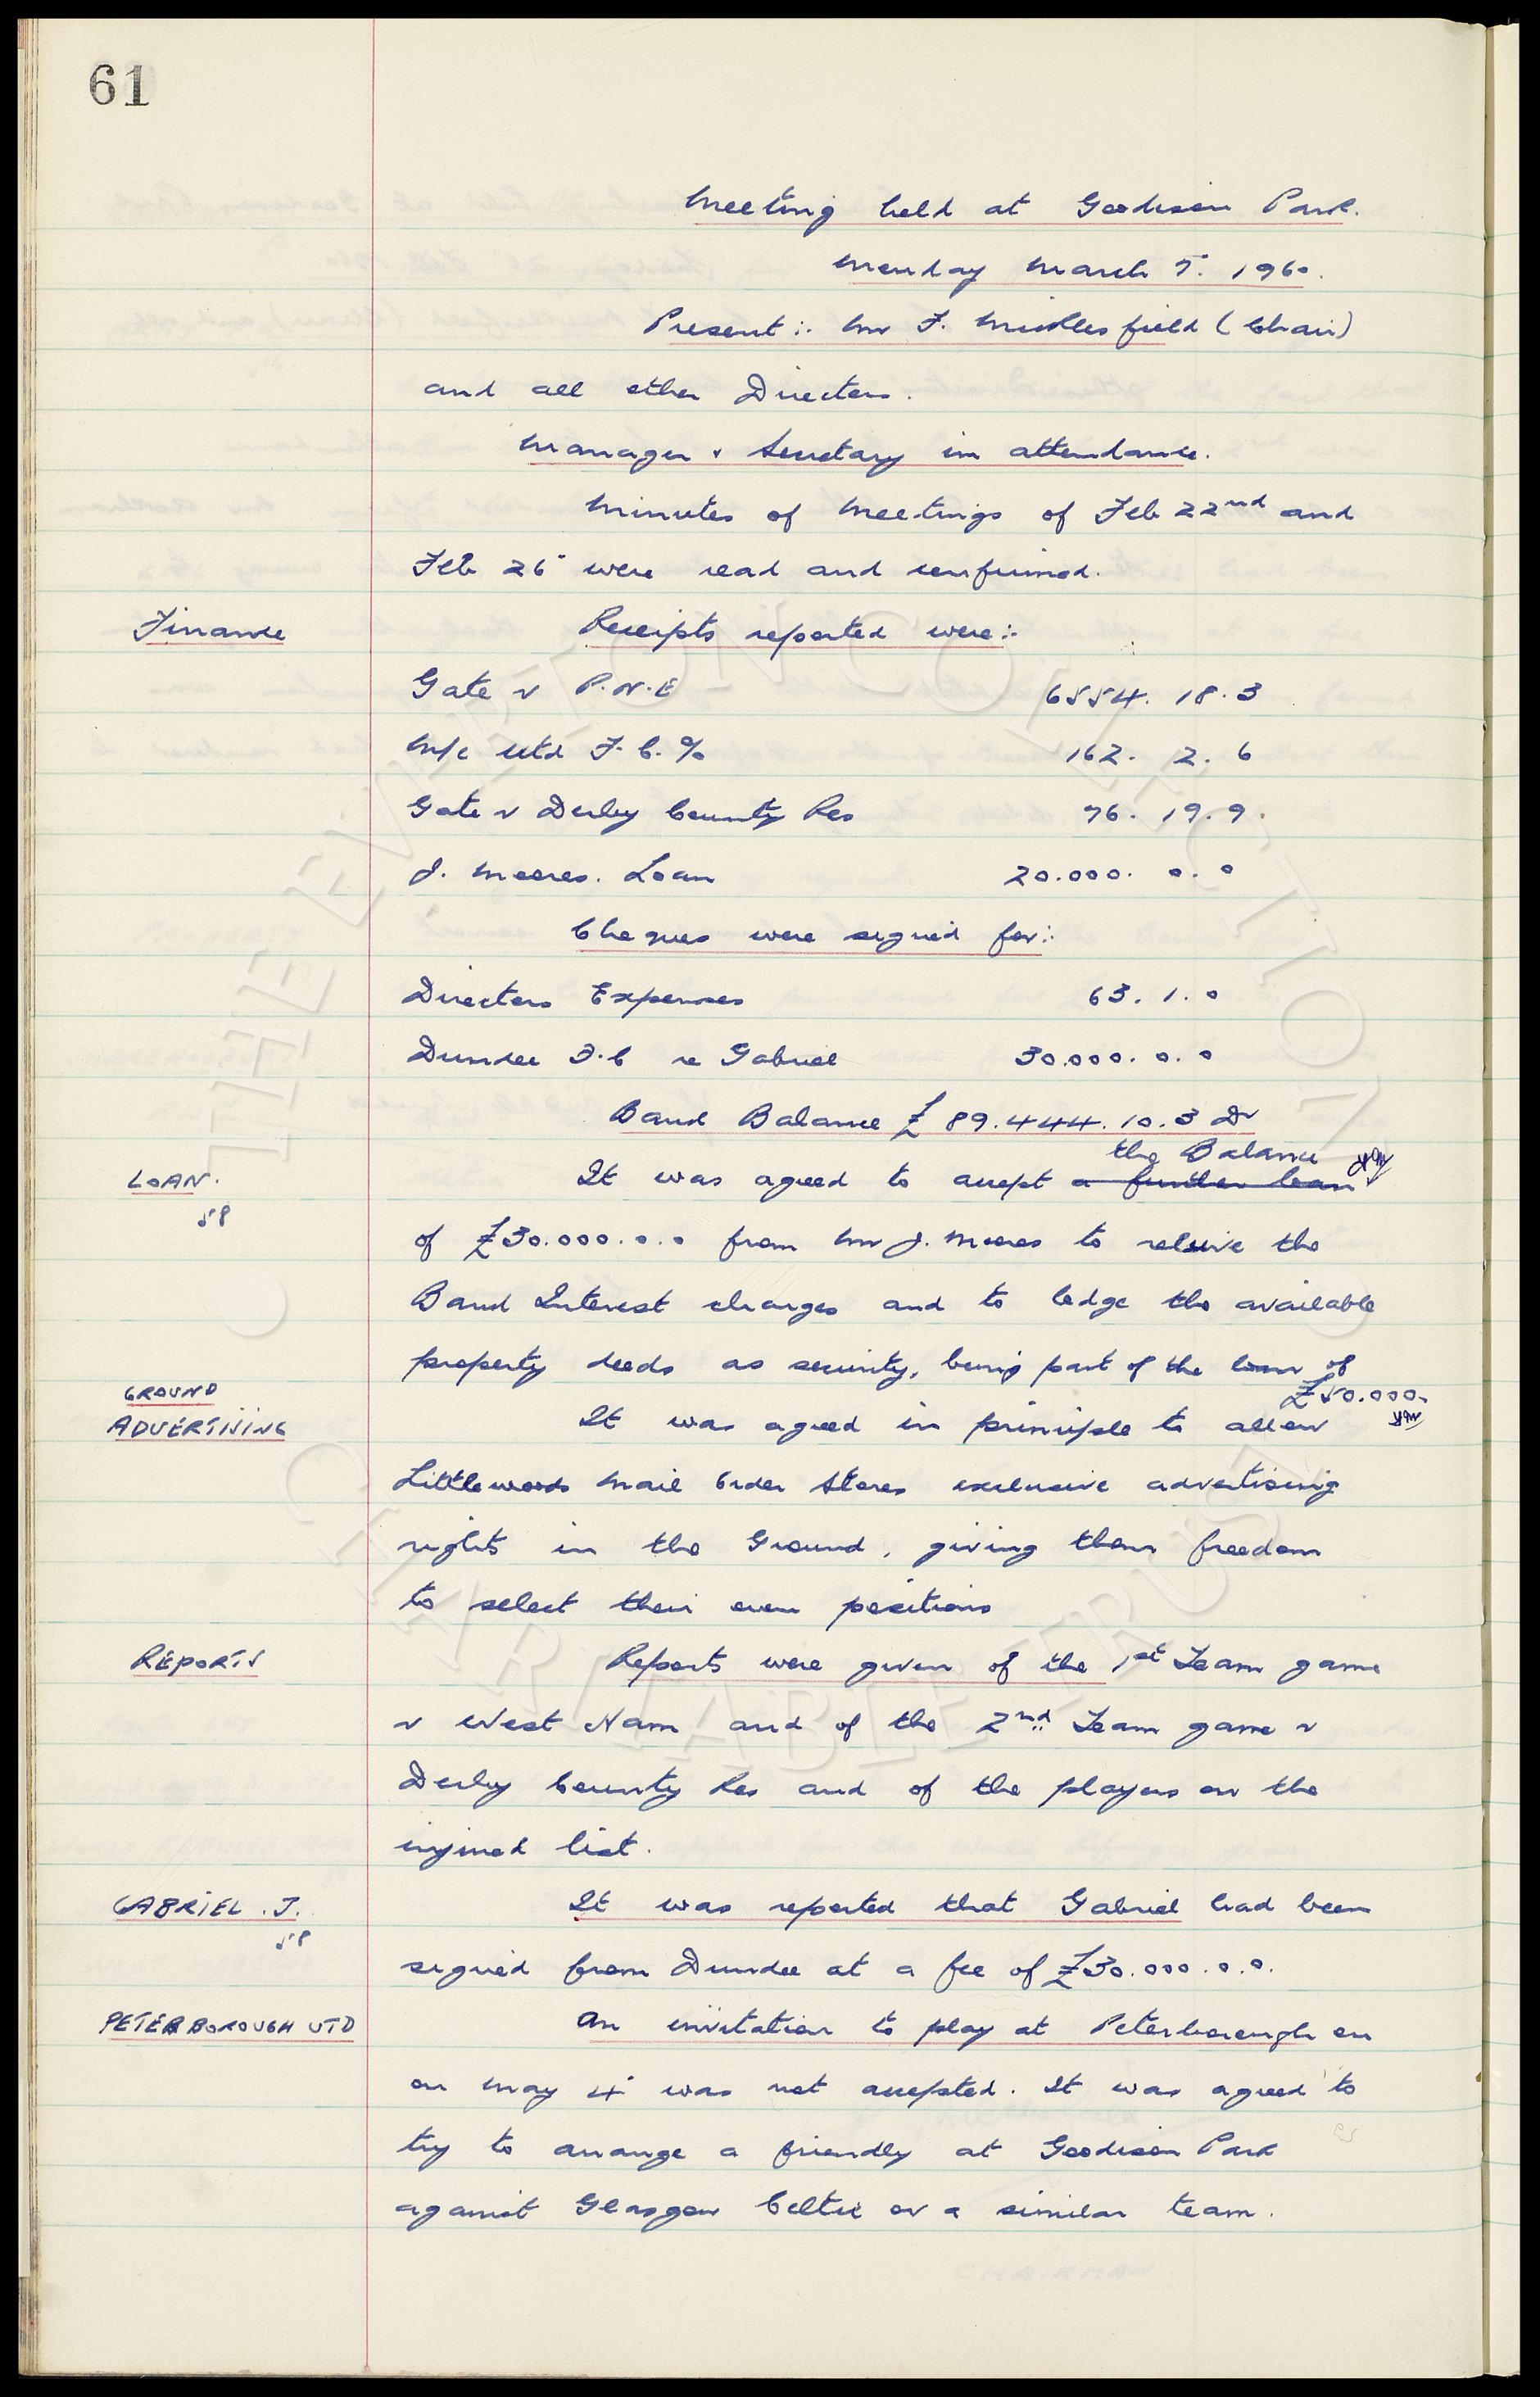 61
Meeting held at Goodison Park.
Monday March 7. 1960.
Present:- Mr F. Micklesfield (Chair)
and all other Directors.
Manager & Secretary in attendance.
Minutes of Meetings of Feb 22nd and
Feb 26" were read and confirmed.
Finance
Receipts reported were:-
Gate v P.N.E 6554. 18. 3
M/c Utd F.C. % 162. 2. 6
Gate v Derby County Res 76. 19. 9.
J. Moores. Loan 20.000. 0. 0
Cheques were signed for:-
Directors Expenses 63. 1. 0
Dundee F.C re Gabriel 30.000. 0. 0
Bank Balance £ 89.444. 10. 3 Dr
the Balance
LOAN.
It was agreed to accept a further loan
58
of £30.000. 0. 0 from Mr J. Moores to relieve the
Bank Interest charges and to lodge the available
property deeds as security, being part of the loan of
£50.000.
GROUND
ADVERTISING
It was agreed in principle to allow
Littlewoods Mail Order Stores exclusive advertising
rights in the Ground, giving them freedom
to select their own positions
REPORTS
Reports were given of the 1st Team game
v West Ham and of the 2nd Team game v
Derby County Res and of the players on the
injured list.
GABRIEL. J.
It was reported that Gabriel had been
58
signed from Dundee at a fee of £30.000. 0. 0.
PETERBOROUGH UTD
An invitation to play at Peterborough on
on May 4" was not accepted. It was agreed to
try to arrange a friendly at Goodison Park
against Glasgow Celtic or a similar team.
THE EVERTON COLLECTION CHARITABLE TRUST